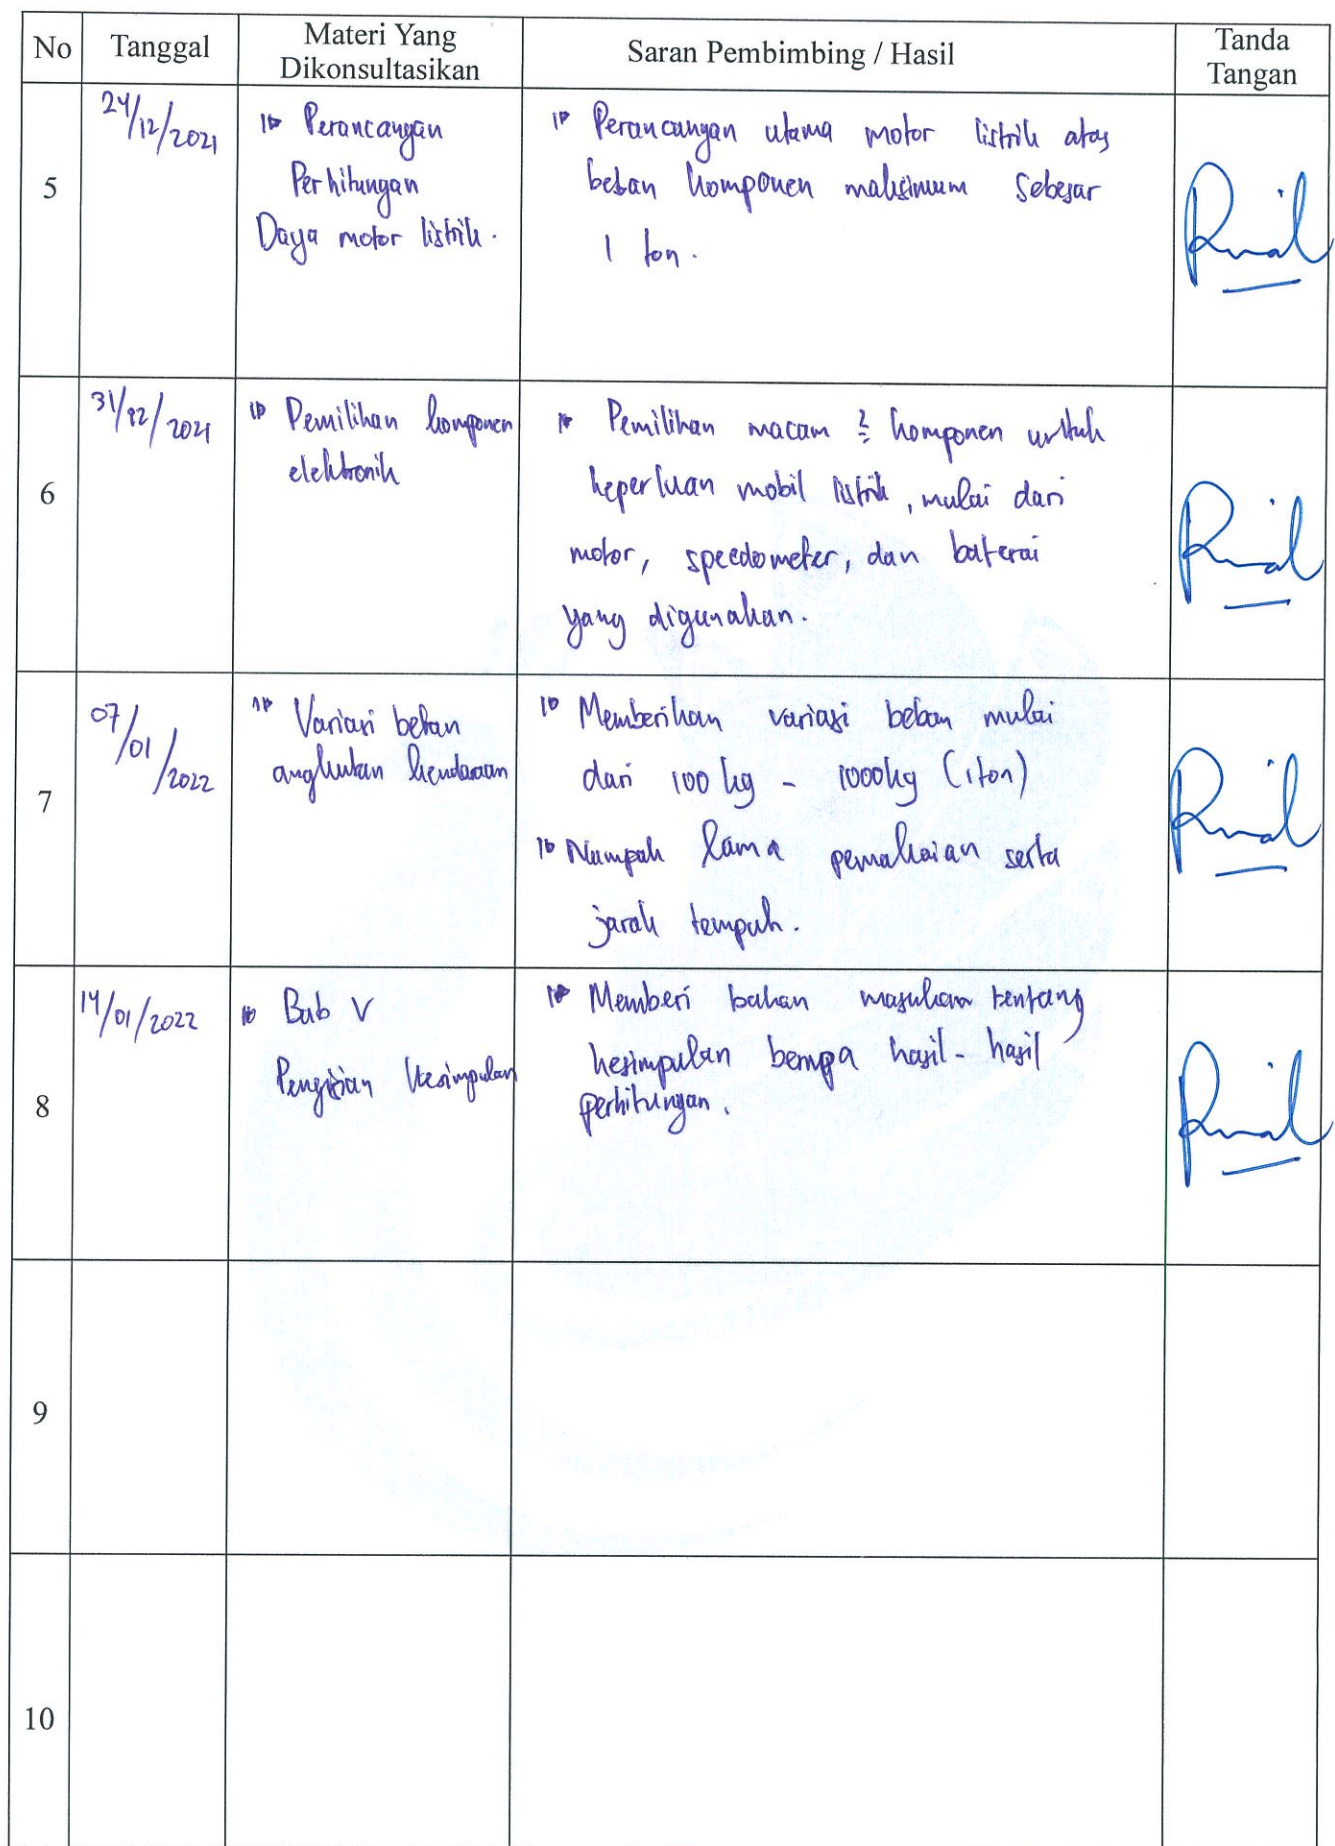 No
Tanggal
Materi Yang
Dikonsultasikan
Saran Pembimbing / Hasil
Tanda
Tangan
5
24/12/2021
Perancangan
Perhitungan
Daya motor listrik.
Perancangan utama motor listrik atas
beban komponen maksimum sebesar
1 ton.
6
31/12/2021
Pemilihan komponen
elektronik
Pemilihan macam 2 komponen untuk
keperluan mobil listrik, mulai dari
motor, speedometer, dan baterai
yang digunakan.
7
07/01/2022
Variasi beban
angkutan kendaraan
Memberikan variasi beban mulai
dari 100 kg - 1000kg (1ton)
lama pemakaian serta
jarak tempuh.
8
14/01/2022
Bab V
Pengisian kesimpulan
Memberi bahan masukan tentang
kesimpulan berupa hasil-hasil
perhitungan.
9
10